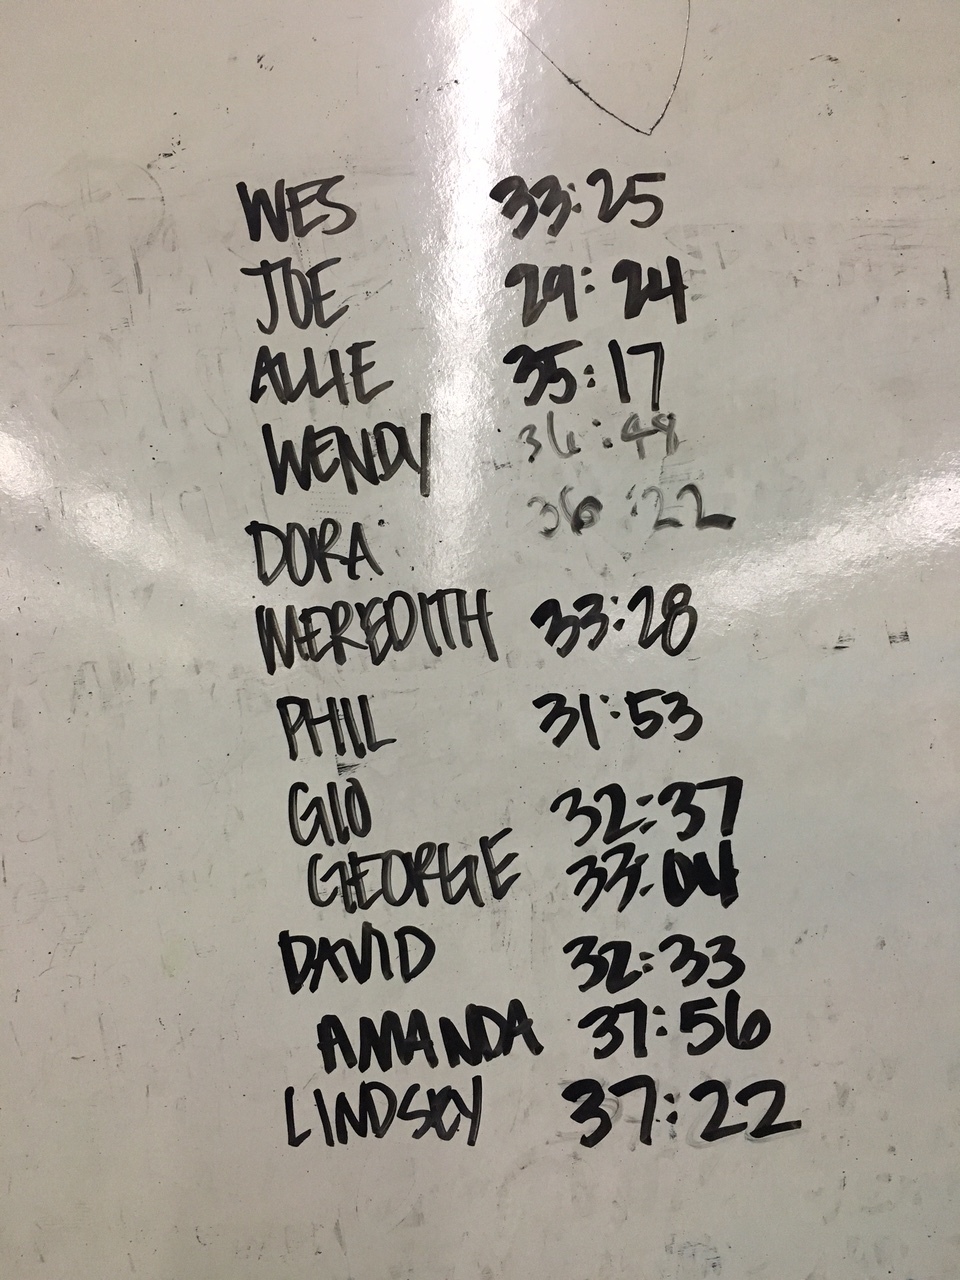 WES 33:25
JOE 29:24
ALLIE 35:17
WENDY 36:49
DORA 36:22
MEREDITH 33:28
PHIL 31:53
GIO 32:37
GEORGE 33:04
DAVID 32:33
AMANDA 37:56
LINDSEY 37:22